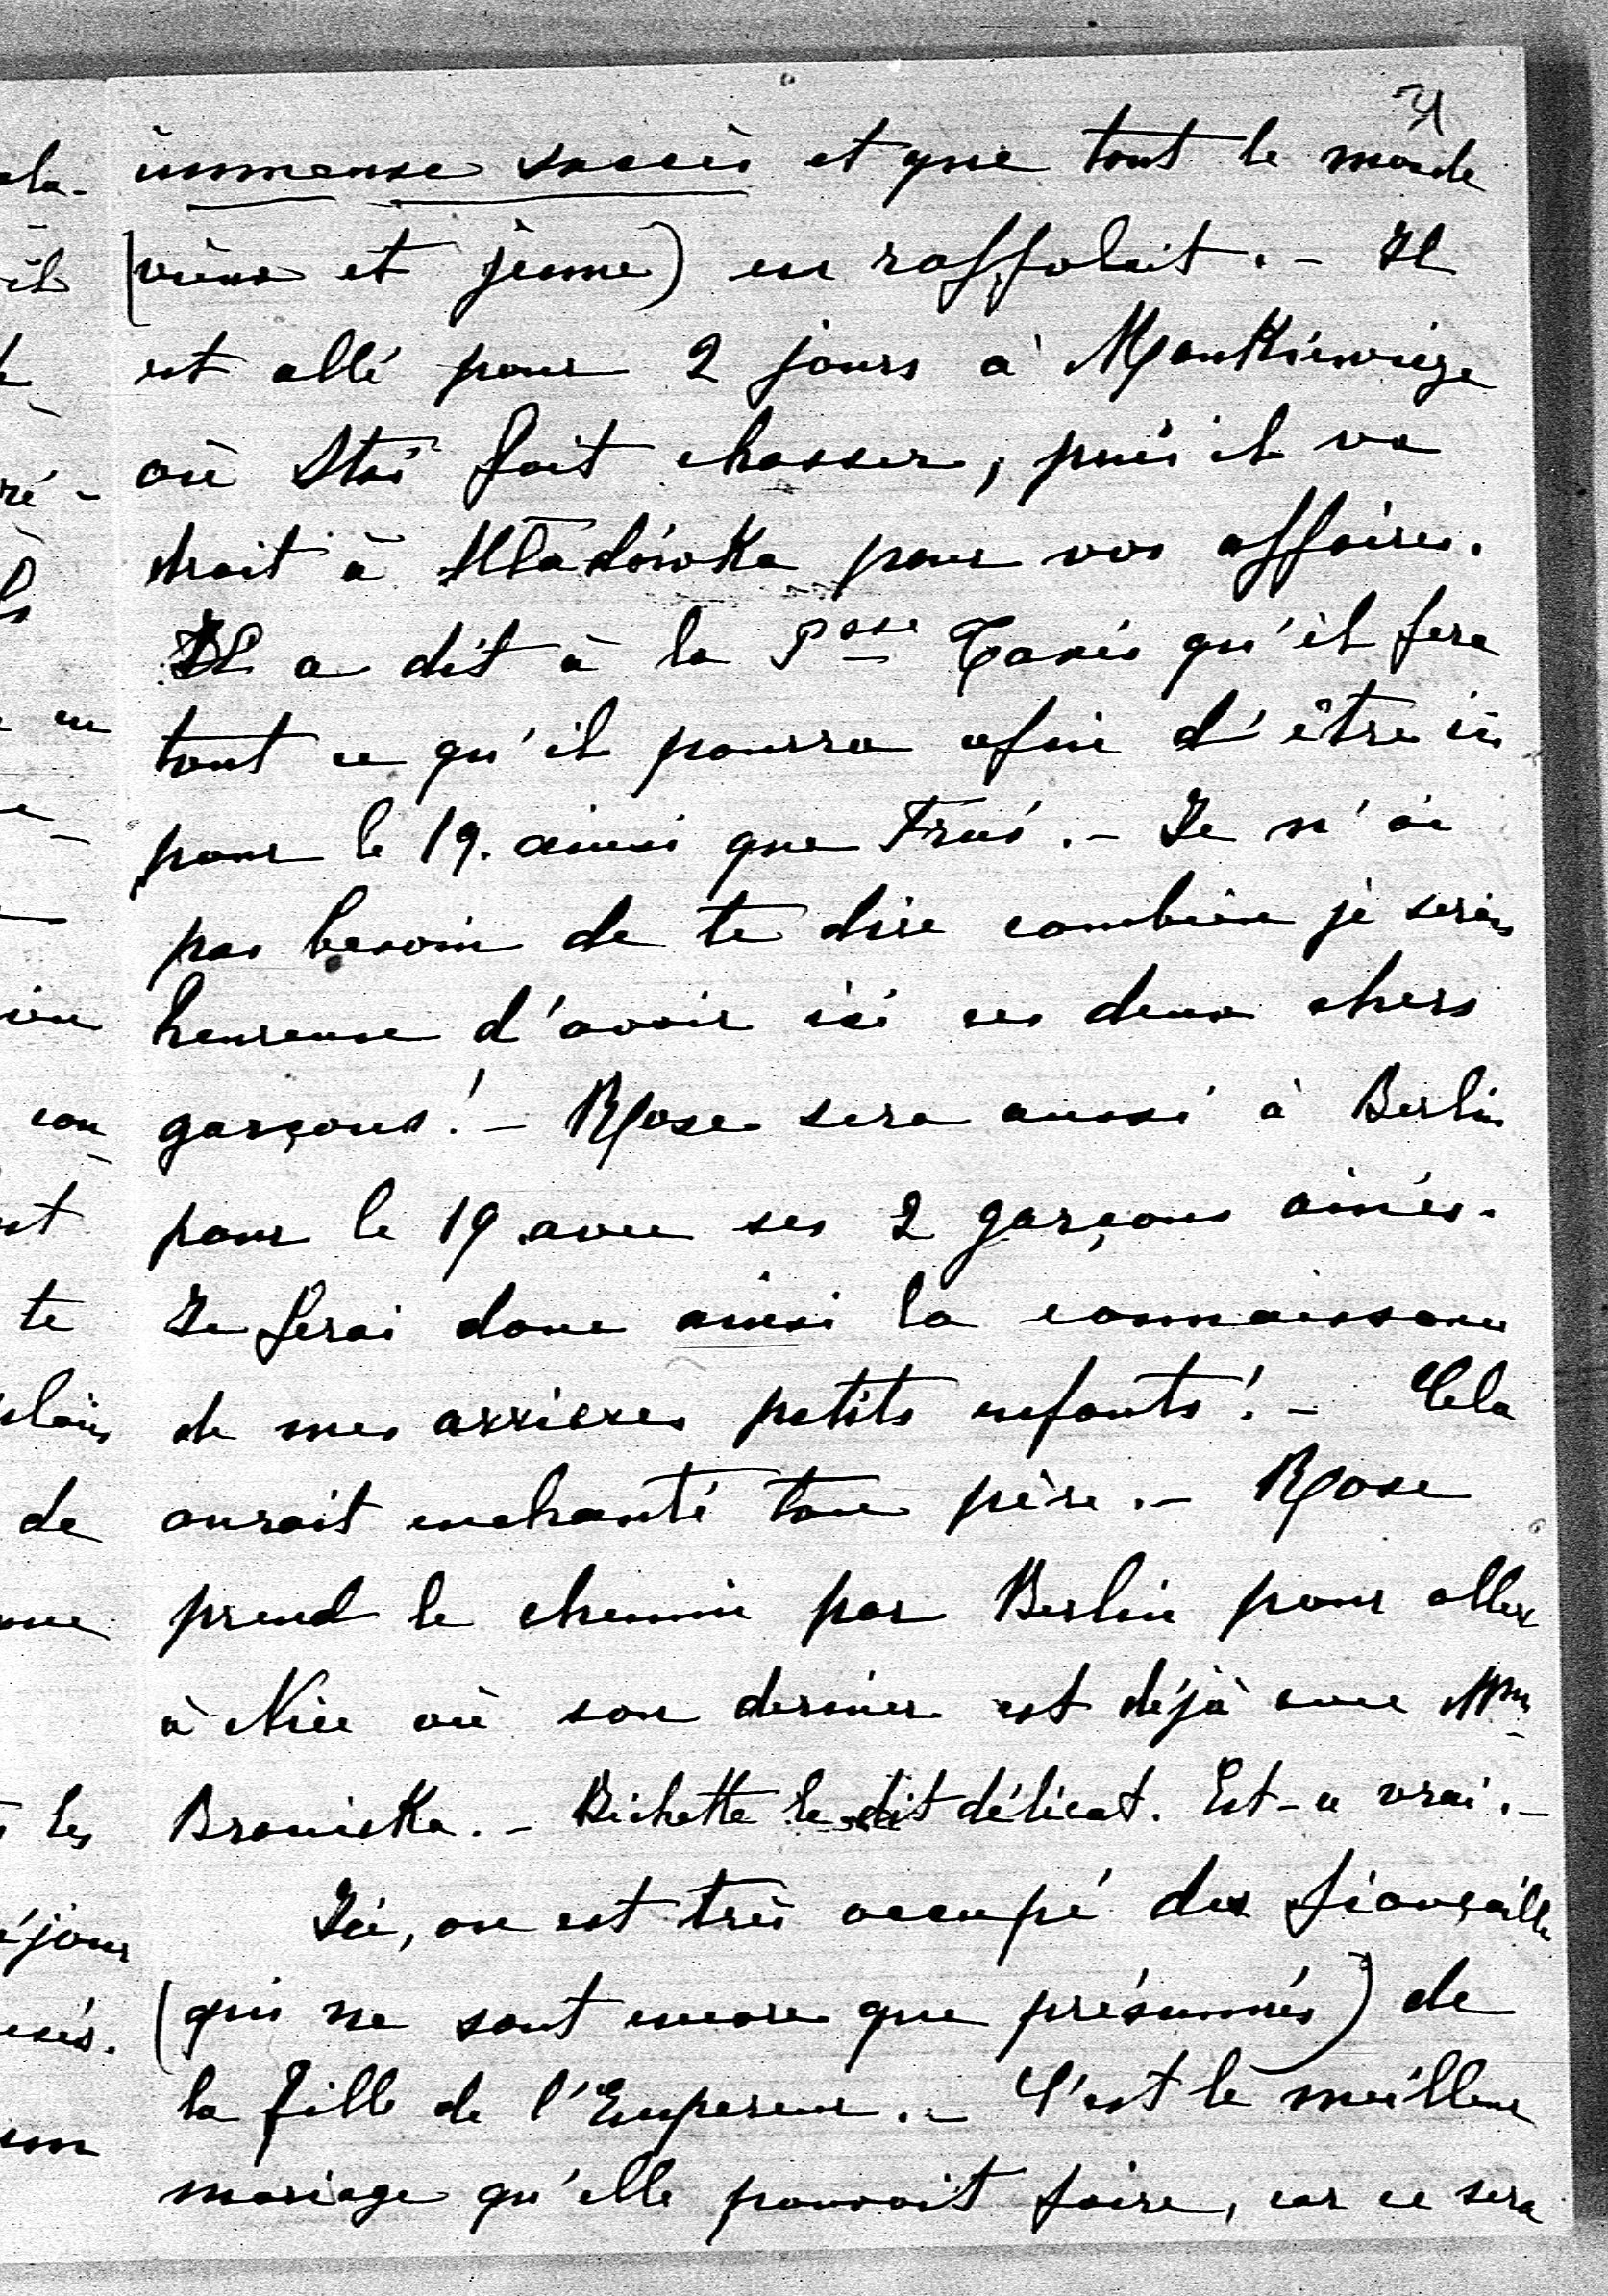 31
immense succès et que tout le monde
(vieux et jeune) en raffolait. - Il
est allé pour 2 jours à Mankiewicze
où Staś fait chasser, puis il va
droit à Hładówka pour vos affaires.
Il a dit à la Psse Taxis qu'il fera
tout ce qu'il pourra afin d'être ici
pour le 19. ainsi que Fraś. - Je n'ai
pas besoin de te dire combien je serais
heureuse d'avoir ici ces deux chers
garçons! - Rose sera aussi à Berlin
pour le 19 avec ses 2 garçons ainés.
Je ferai donc ainsi la connaissance
de mes arrieres petits enfants! - Cela
aurait enchanté ton père. - Rose
prend le chemin par Berlin pour aller
à Nice où son dernier est déjà avec Mme
Broniska. - Bichette le dit délicat. Est-ce vrai. -
Ici, on est très occupé des fiançaille
(qui ne sont encore que présumés) de
la fille de l'Empereur. - C'est le meilleur
mariage qu'elle pouvait faire, car ce sera